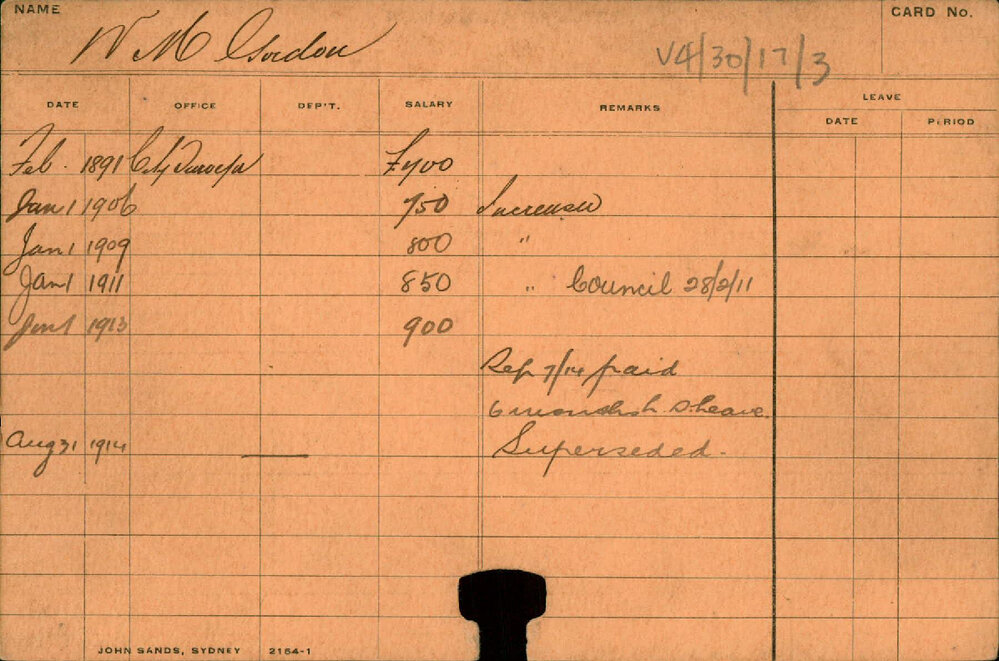 NAME
CARD No.
W M Gordon
V4/30/17/3
DATE OFFICE DEP'T. SALARY REMARKS LEAVE
DATE PERIOD
Feb. 1891 City Surveyor £700
Jan 1 1906 750 Increased
Jan 1 1909 800 "
Jan 1 1911 850 " Council 28/2/11
Jan 1 1913 900
Sep 7/14 paid
6 months leave.
Aug 31 1914 — Superseded.
JOHN SANDS, SYDNEY 2154-1